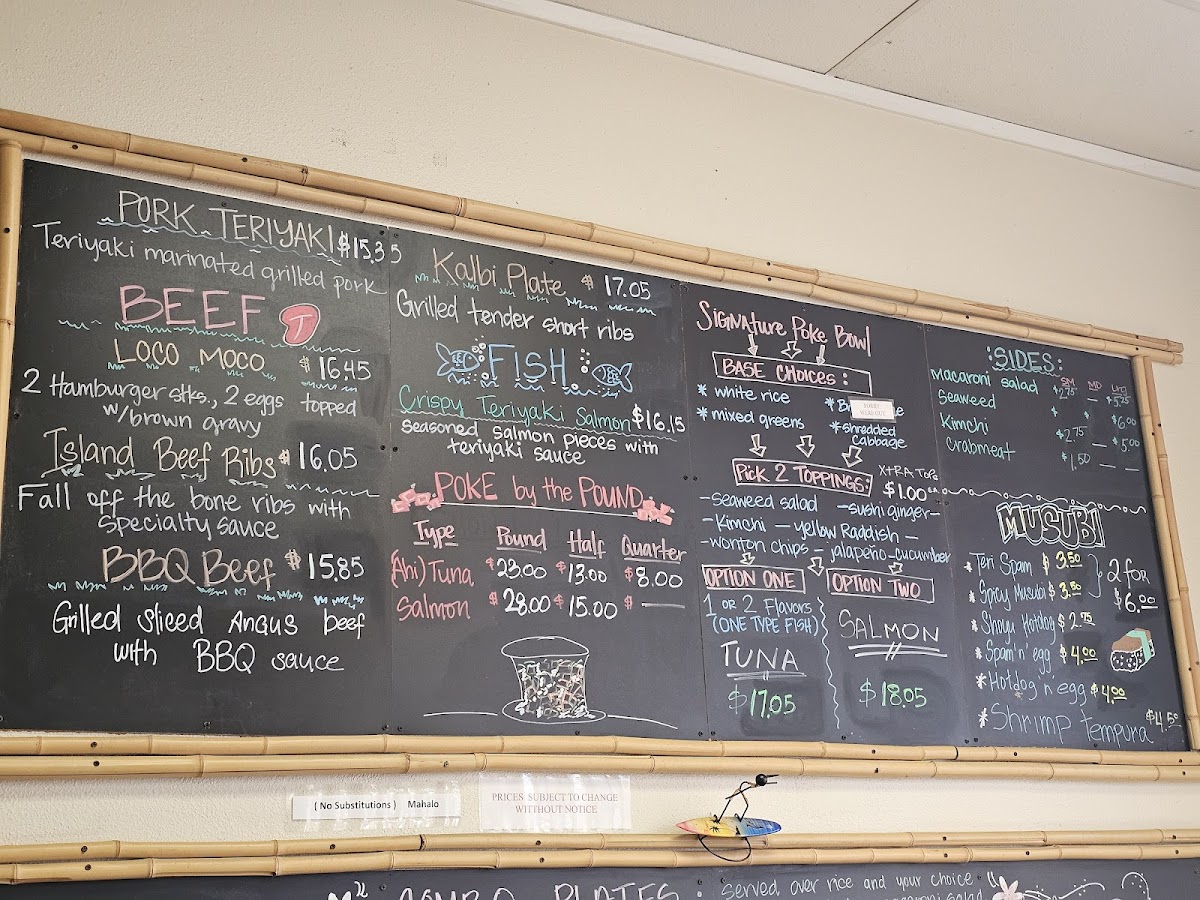 PORK TERIYAKI $15.35
Teriyaki marinated grilled pork
BEEF
LOCO MOCO $16.45
2 Hamburger stks., 2 eggs topped
w/brown gravy
Island Beef Ribs $16.05
Fall off the bone ribs with
specialty sauce
BBQ Beef $15.85
Grilled sliced Angus beef
with BBQ sauce
Kalbi Plate $17.05
Grilled tender short ribs
FISH
Crispy Teriyaki Salmon $16.15
Seasoned salmon pieces with
teriyaki sauce
POKE by the POUND
Type Pound Half Quarter
(Ahi) Tuna $23.00 $13.00 $8.00
Salmon $28.00 $15.00 $ —
Signature Poke Bowl
BASE CHOICES:
* white rice
* mixed greens
* shredded
cabbage
Pick 2 TOPPINGS:
XTRA Top
$1.00 ea
- seaweed salad - sushi ginger -
- Kimchi - yellow Raddish -
- wonton chips - jalapeño - cucumber
OPTION ONE
1 or 2 Flavors
(ONE TYPE FISH)
TUNA
$17.05
OPTION TWO
SALMON
$18.05
:SIDES:
SM MD LRG
macaroni salad $2.75 — $5.25
Seaweed $ $ $6.00
Kimchi $2.75 — $5.00
Crabmeat $1.50 — —
MUSUBI
* Teri Spam $3.50
* Spicy Musubi $3.50
2 for
$6.00
* Shoyu Hotdog $2.75
* Spam'n'egg $4.00
* Hotdog n'egg $4.00
* Shrimp Tempura $4.50
( No Substitutions ) Mahalo
PRICES SUBJECT TO CHANGE
WITTHOUT NOTICE
PLATES
Served over rice and your choice